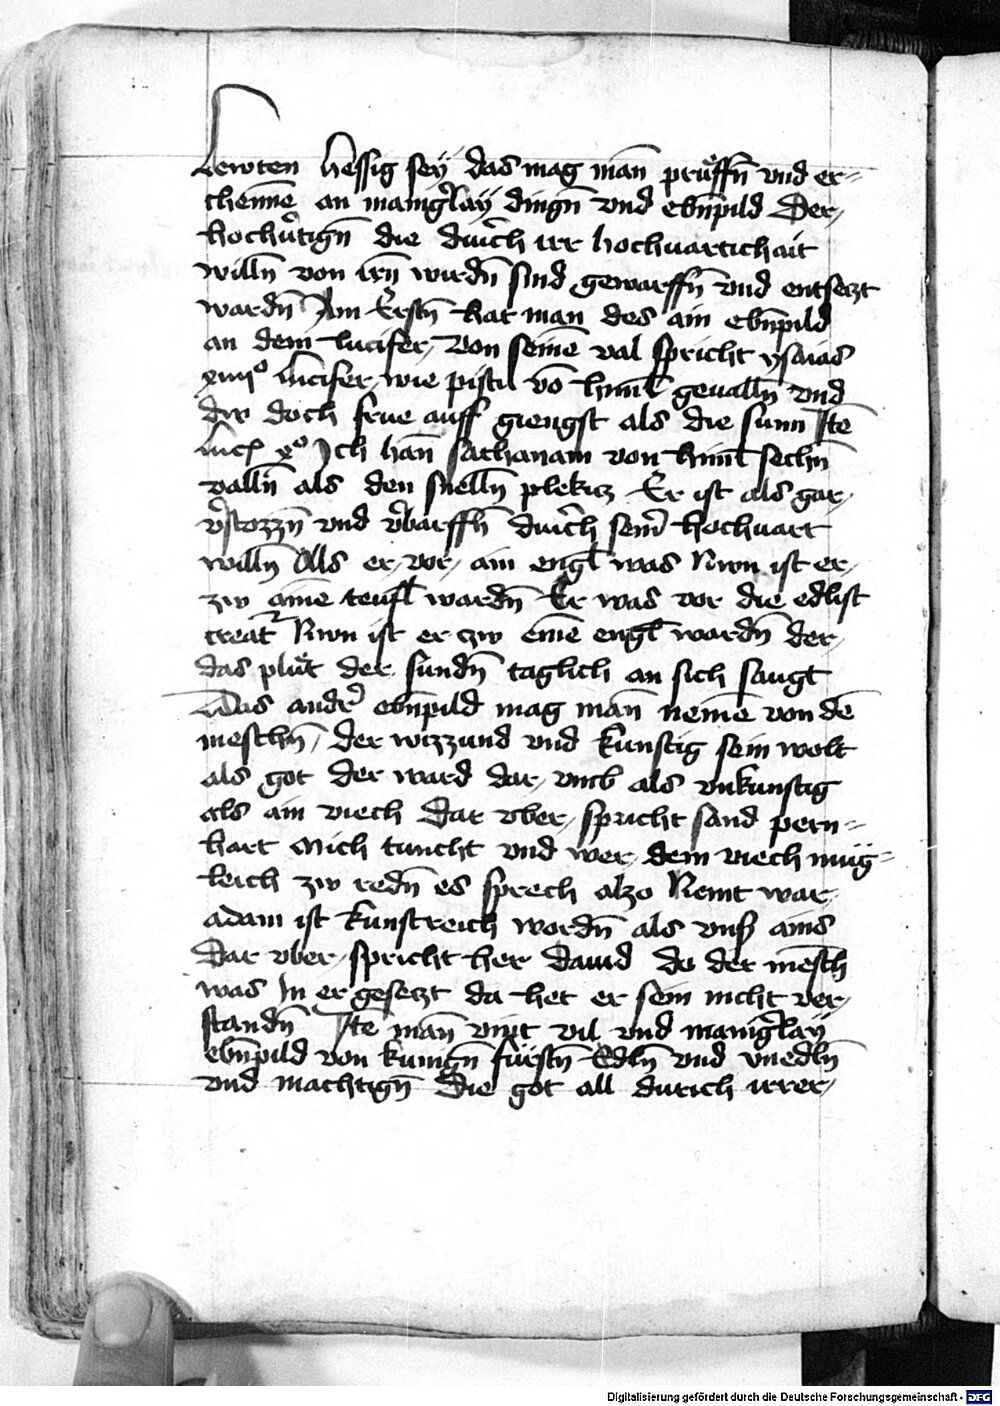 Lewten hessig sey das mag man prüffn̄ vnd er=
chenn̄e an manig͛lay dingn̄ vnd ebn̄pild Der
hochu͛tign̄ die durch irr hochuartichait
willn̄ von irn̄ wirdn̄ sind geworffn̄ vnd entsetzt
wardn̄ Am Erstn̄ hat man des ain ebn̄pild
an dem lucifer, von seinē val spricht ysaias
xiiijº lucifer wie pistu vō himl geualln̄ vnd
dw doch frue auff giengst als die sunn Itē
luc͛ xº Ich han̄ sathanam von himl sechn̄
valln̄ als den snelln̄ plekcz Er ist als gar
v͛stozzn̄ vnd v͛barffn̄ durch sein͛ hochuart
willn̄ Als er vor ain engl was Nwn ist er
zw ainē teufl wardn̄ Er was vor die edlist
creat͛ Nwn ist er czw einē engl wardn̄ der
das plůt der sundn̄ taglich an sich saugt
Das andr͛ ebn̄pild mag man̄ nemē von dē
meschn̄, der wizzund vnd kunstig sein wolt
als got der ward dar vmb als vnkunstig
als ain viech Dar vber spricht sand pern=
hart Mich tuncht vnd wer dem viech müg=
leich zw redn̄ es sprech alzo Nemt war
adam ist kunstreich wordn̄ als vns ains
Dar vber spricht her dauid do der mēsch
was In er gesetzt da het er sein nicht ver
standn̄ Itē man̄ vint vil vnd manig͛lay
ebn̄pild von kunign̄ fürstn̄ Edln̄ vnd vnedln̄
vnd machtign̄ Die got all durich irrer
Digitalisierung gefördert durch die Deutsche Forschungsgemeinschaft - DFG